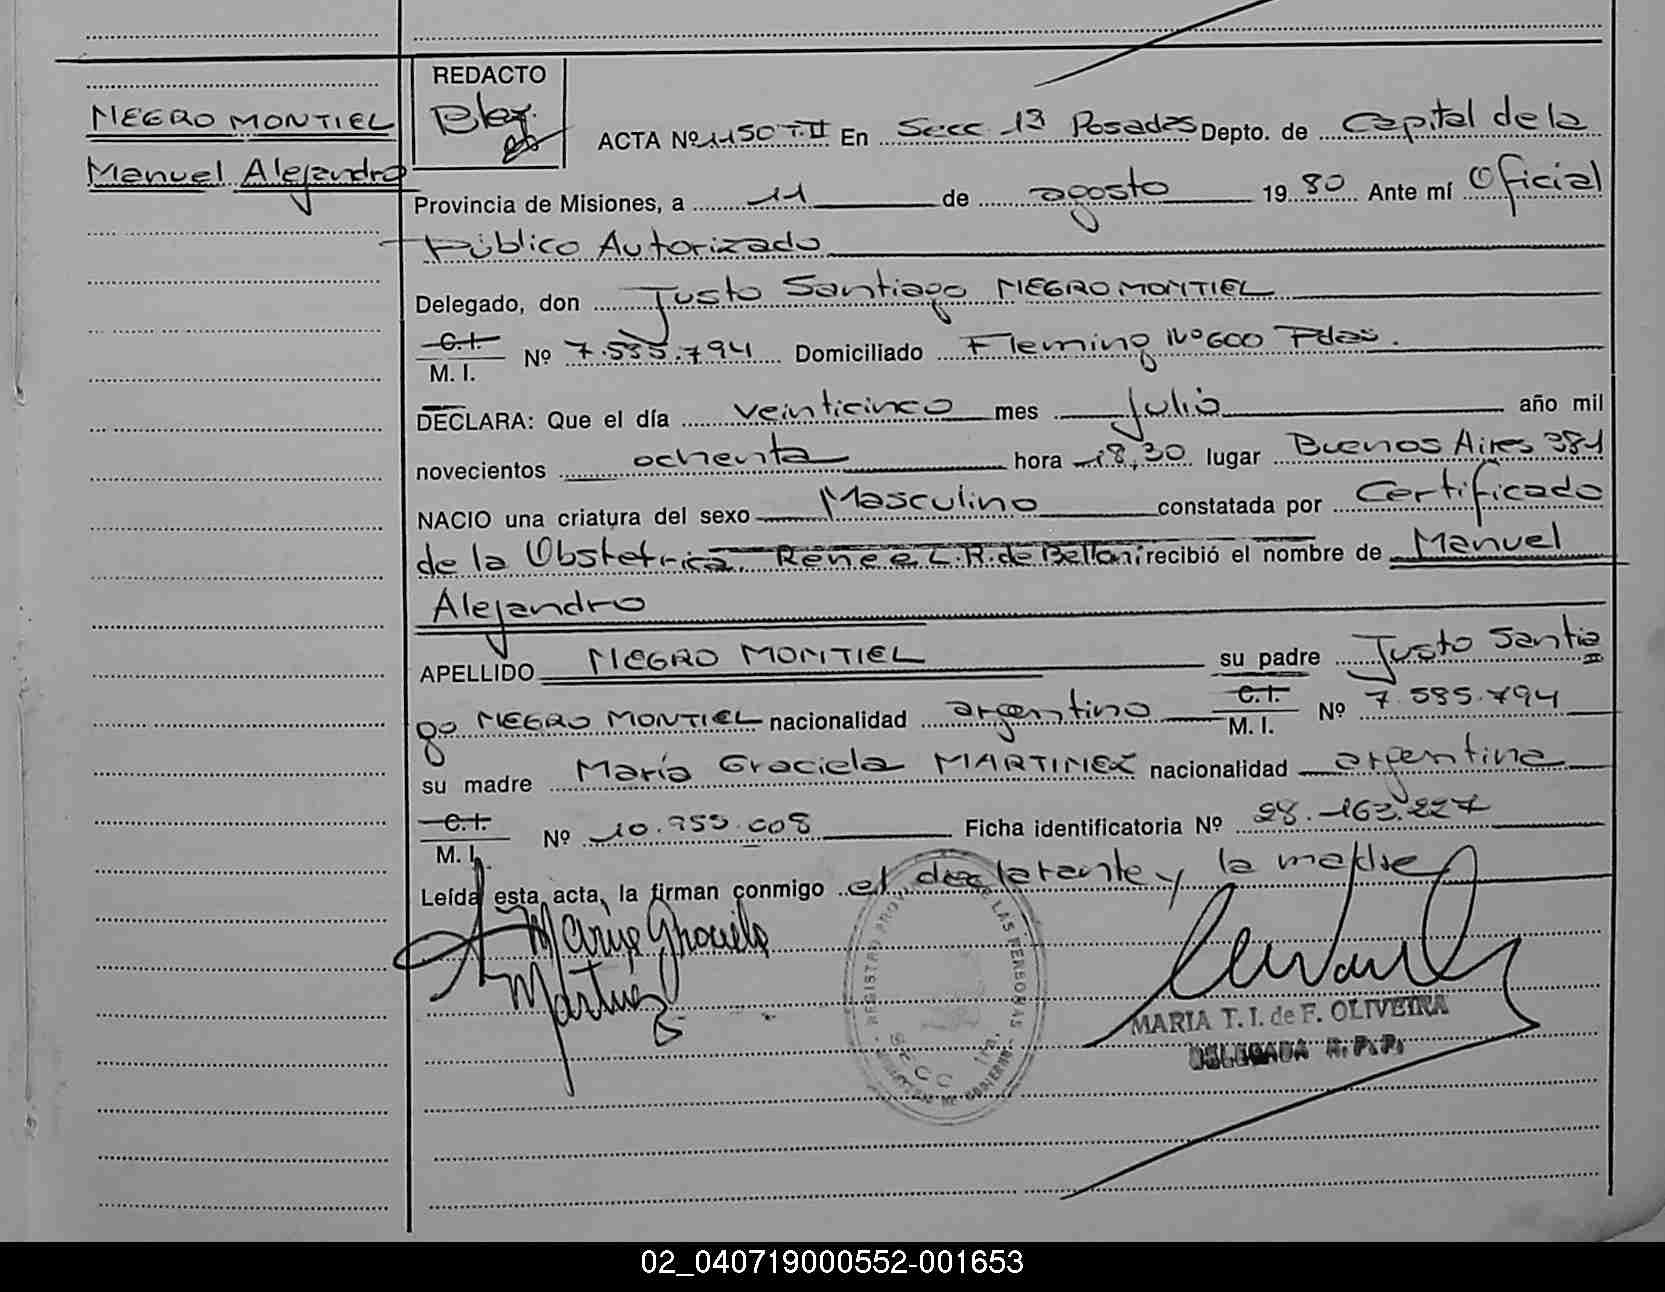 NEGRO MONTIEL
Manuel Alejandro
REDACTO
ACTA Nº 1150 T.II En Secc 1ª Posadas Depto. de Capital de la
Provincia de Misiones, a 11 de agosto 19 80 Ante mí Oficial
Público Autorizado
Delegado, don Justo Santiago NEGRO MONTIEL
C.I.
M. I. Nº 7.535.794 Domiciliado Fleming Nº 600 Pdas.
DECLARA: Que el día veinticinco mes julio año mil
novecientos ochenta hora 18,30 lugar Buenos Aires 381
NACIO una criatura del sexo Masculino constatada por Certificado
de la Obstetrica Renee L. R. de Belloni recibió el nombre de Manuel
Alejandro
APELLIDO NEGRO MONTIEL su padre Justo Santia
go NEGRO MONTIEL nacionalidad argentino C.I. M. I. Nº 7.535.794
su madre María Graciela MARTINEZ nacionalidad argentina
C.I.
M. I. Nº 10.955.008 Ficha identificatoria Nº 28.163.227
Leída esta acta, la firman conmigo el declarante y la madre
Maria Graciela
Martinez
REGISTRO PROV DE LAS PERSONAS
Secc 1ra.
MARIA T. I. de F. OLIVEIRA
DELEGADA R. P. P.
02_040719000552-001653